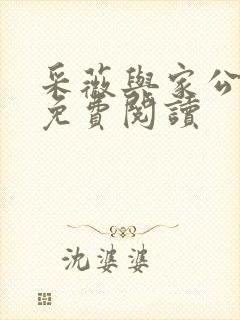 采薇與家公
免費閱讀
沈婆婆